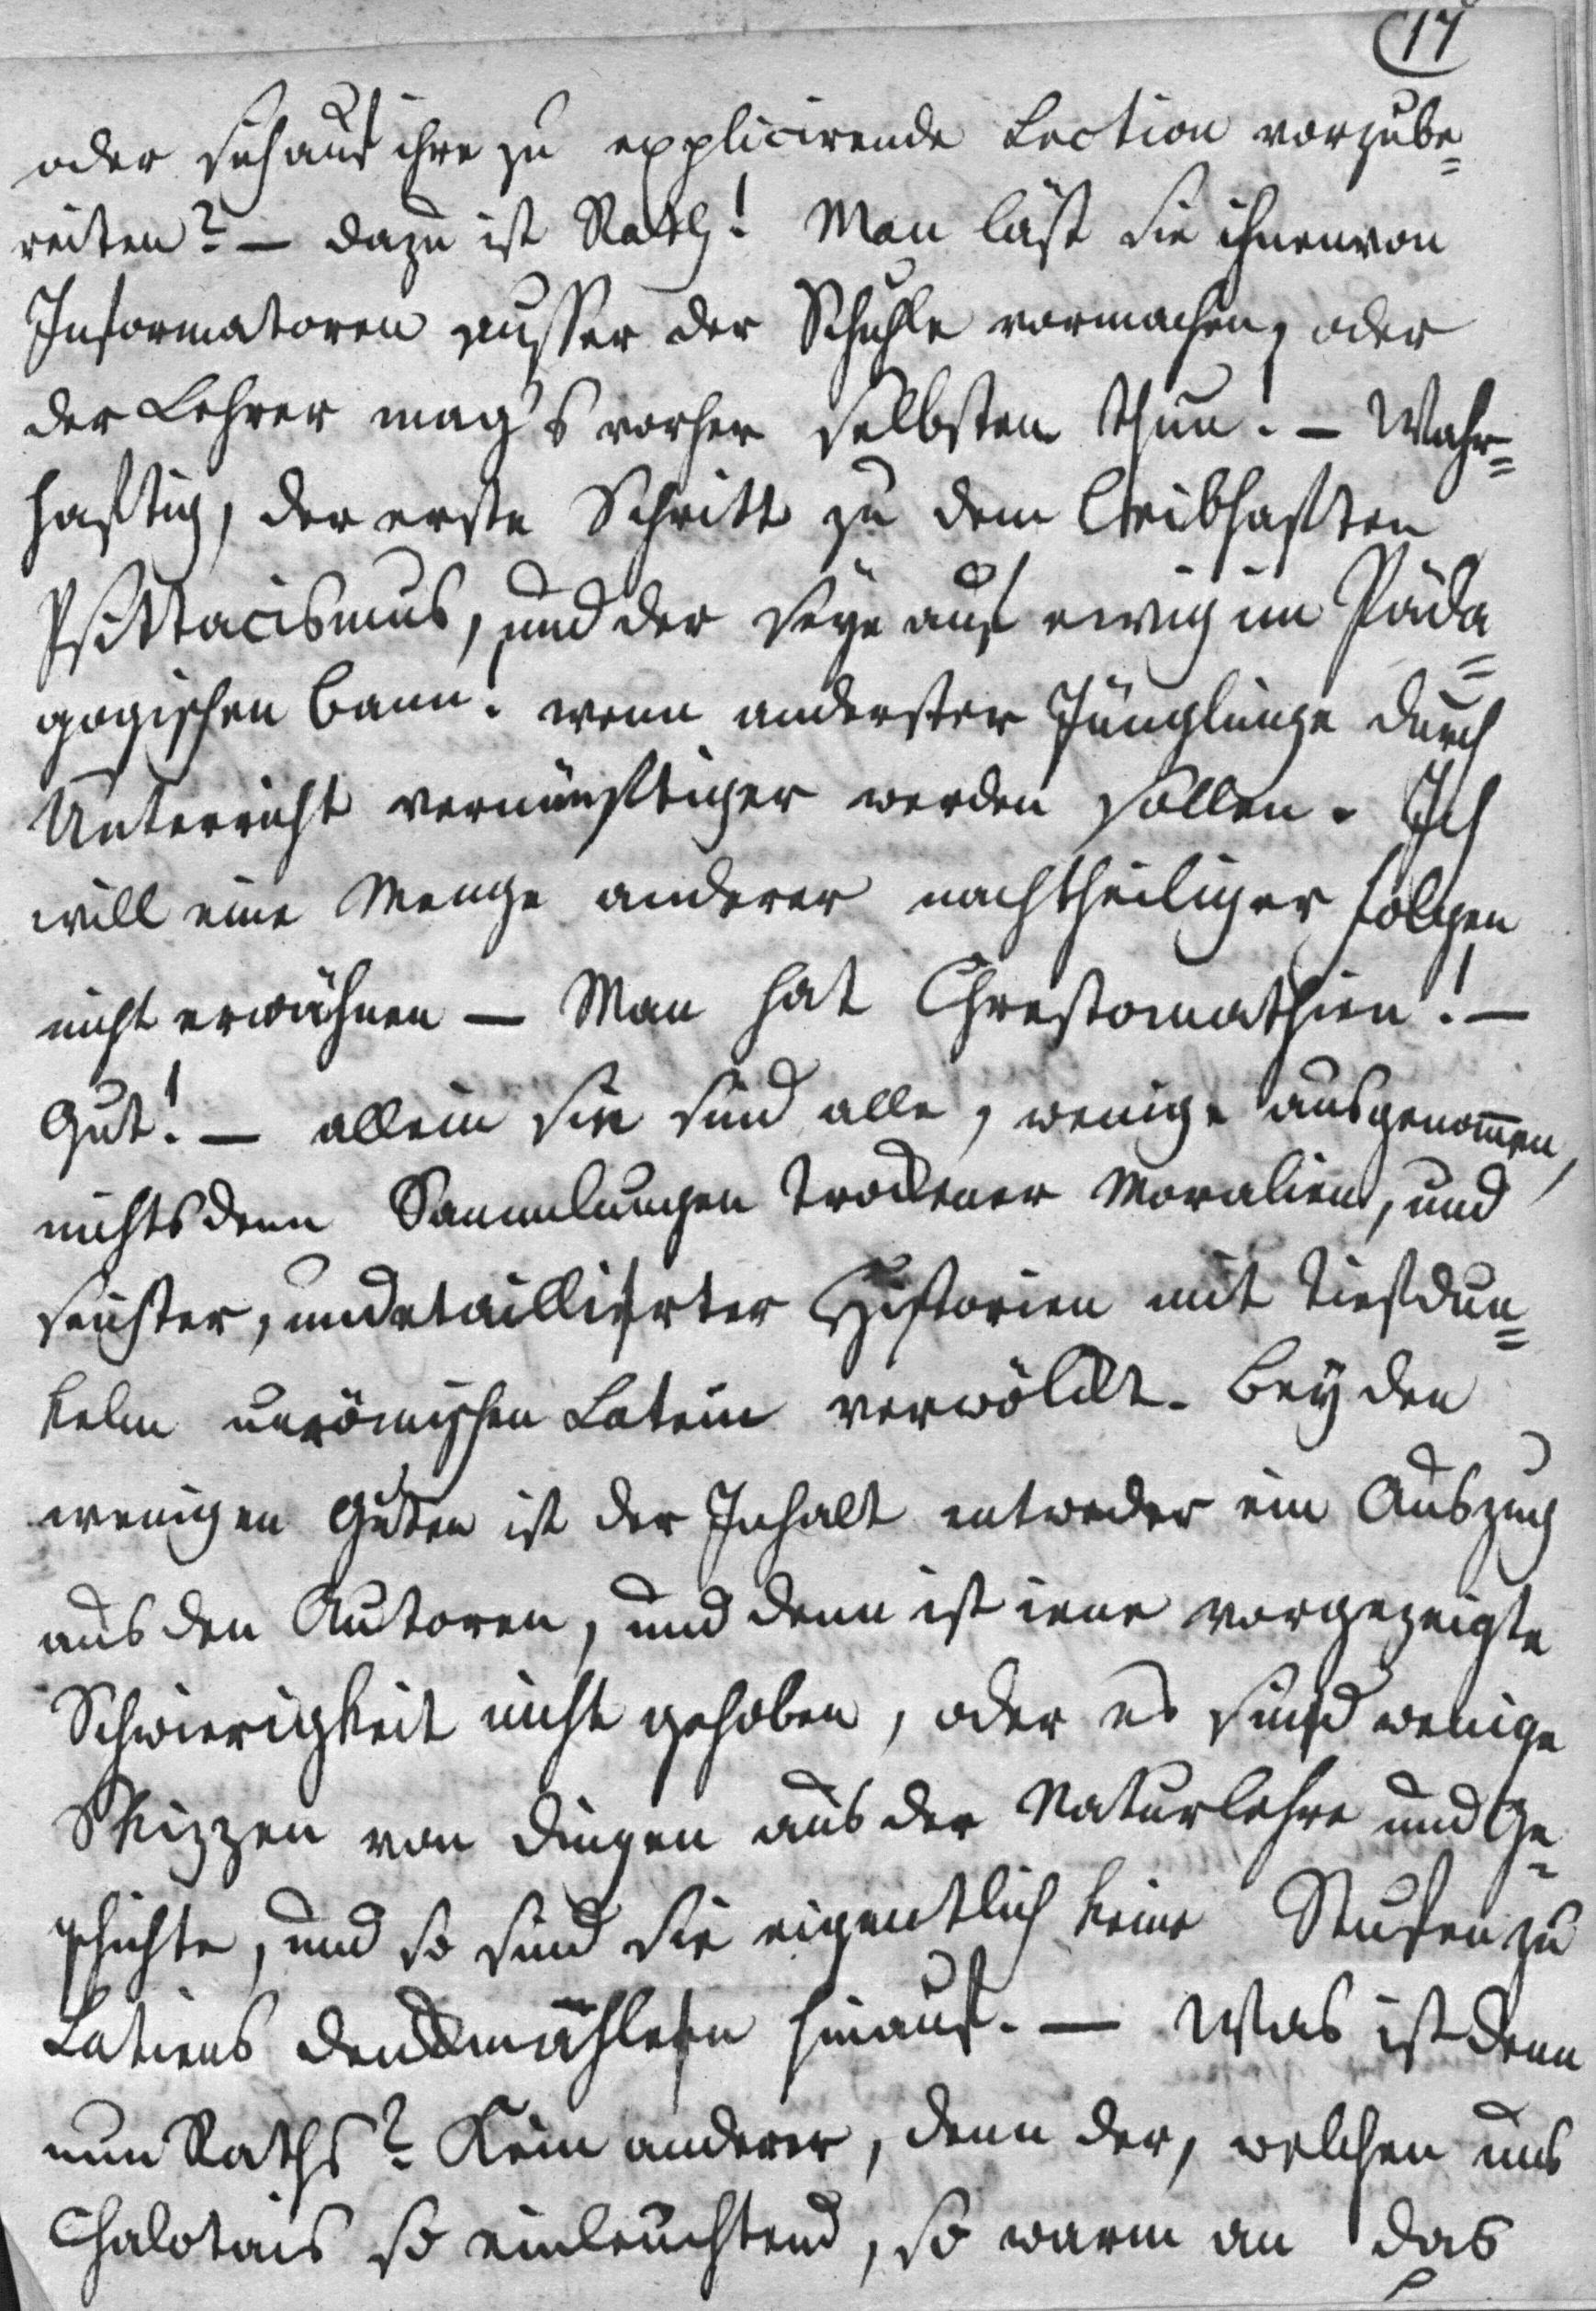 17
oder sich auf ihre zu explicirende Lection vorzube=
reiten? — dazu ist Rath! Man läst sie ihnen von
Informatoren ausser der Schuhle vormachen, oder
der Lehrer mag's vorher selbsten thun. — Wahr=
haftig, der erste Schritt zu dem leibhaften
Psittacismus, und der seye auf ewig im Päda=
gogischen Bann! wenn anderster Jünglinge durch
Unterricht vernünftiger werden sollen. Ich
will eine Menge anderer nachtheiliger folgen
nicht erwähnen — Man hat Chrestomathien! —
Gut! — allein sie sind alle, wenige ausgenom̄en,
nichts denn Sammlungen trockener Moralien, und
seichter, undetaillirter Historien mit tiefdun=
kelm unrömischen Latein verwölkt. Bey den
wenigen Guten ist der Inhalt entweder ein Auszug
aus den Autoren, und denn ist iene vorgezeigte
Schwierigkeit nicht gehoben, oder es sind wenige
Skizzen von dingen aus der Naturlehre und Ge=
schichte, und so sind sie eigentlich keine Stufen zu
Latiens denckmählern hinauf. — Was ist denn
nun Raths? Kein anderer, denn der, welchen uns
Chalotais so einleuchtend, so warm an das